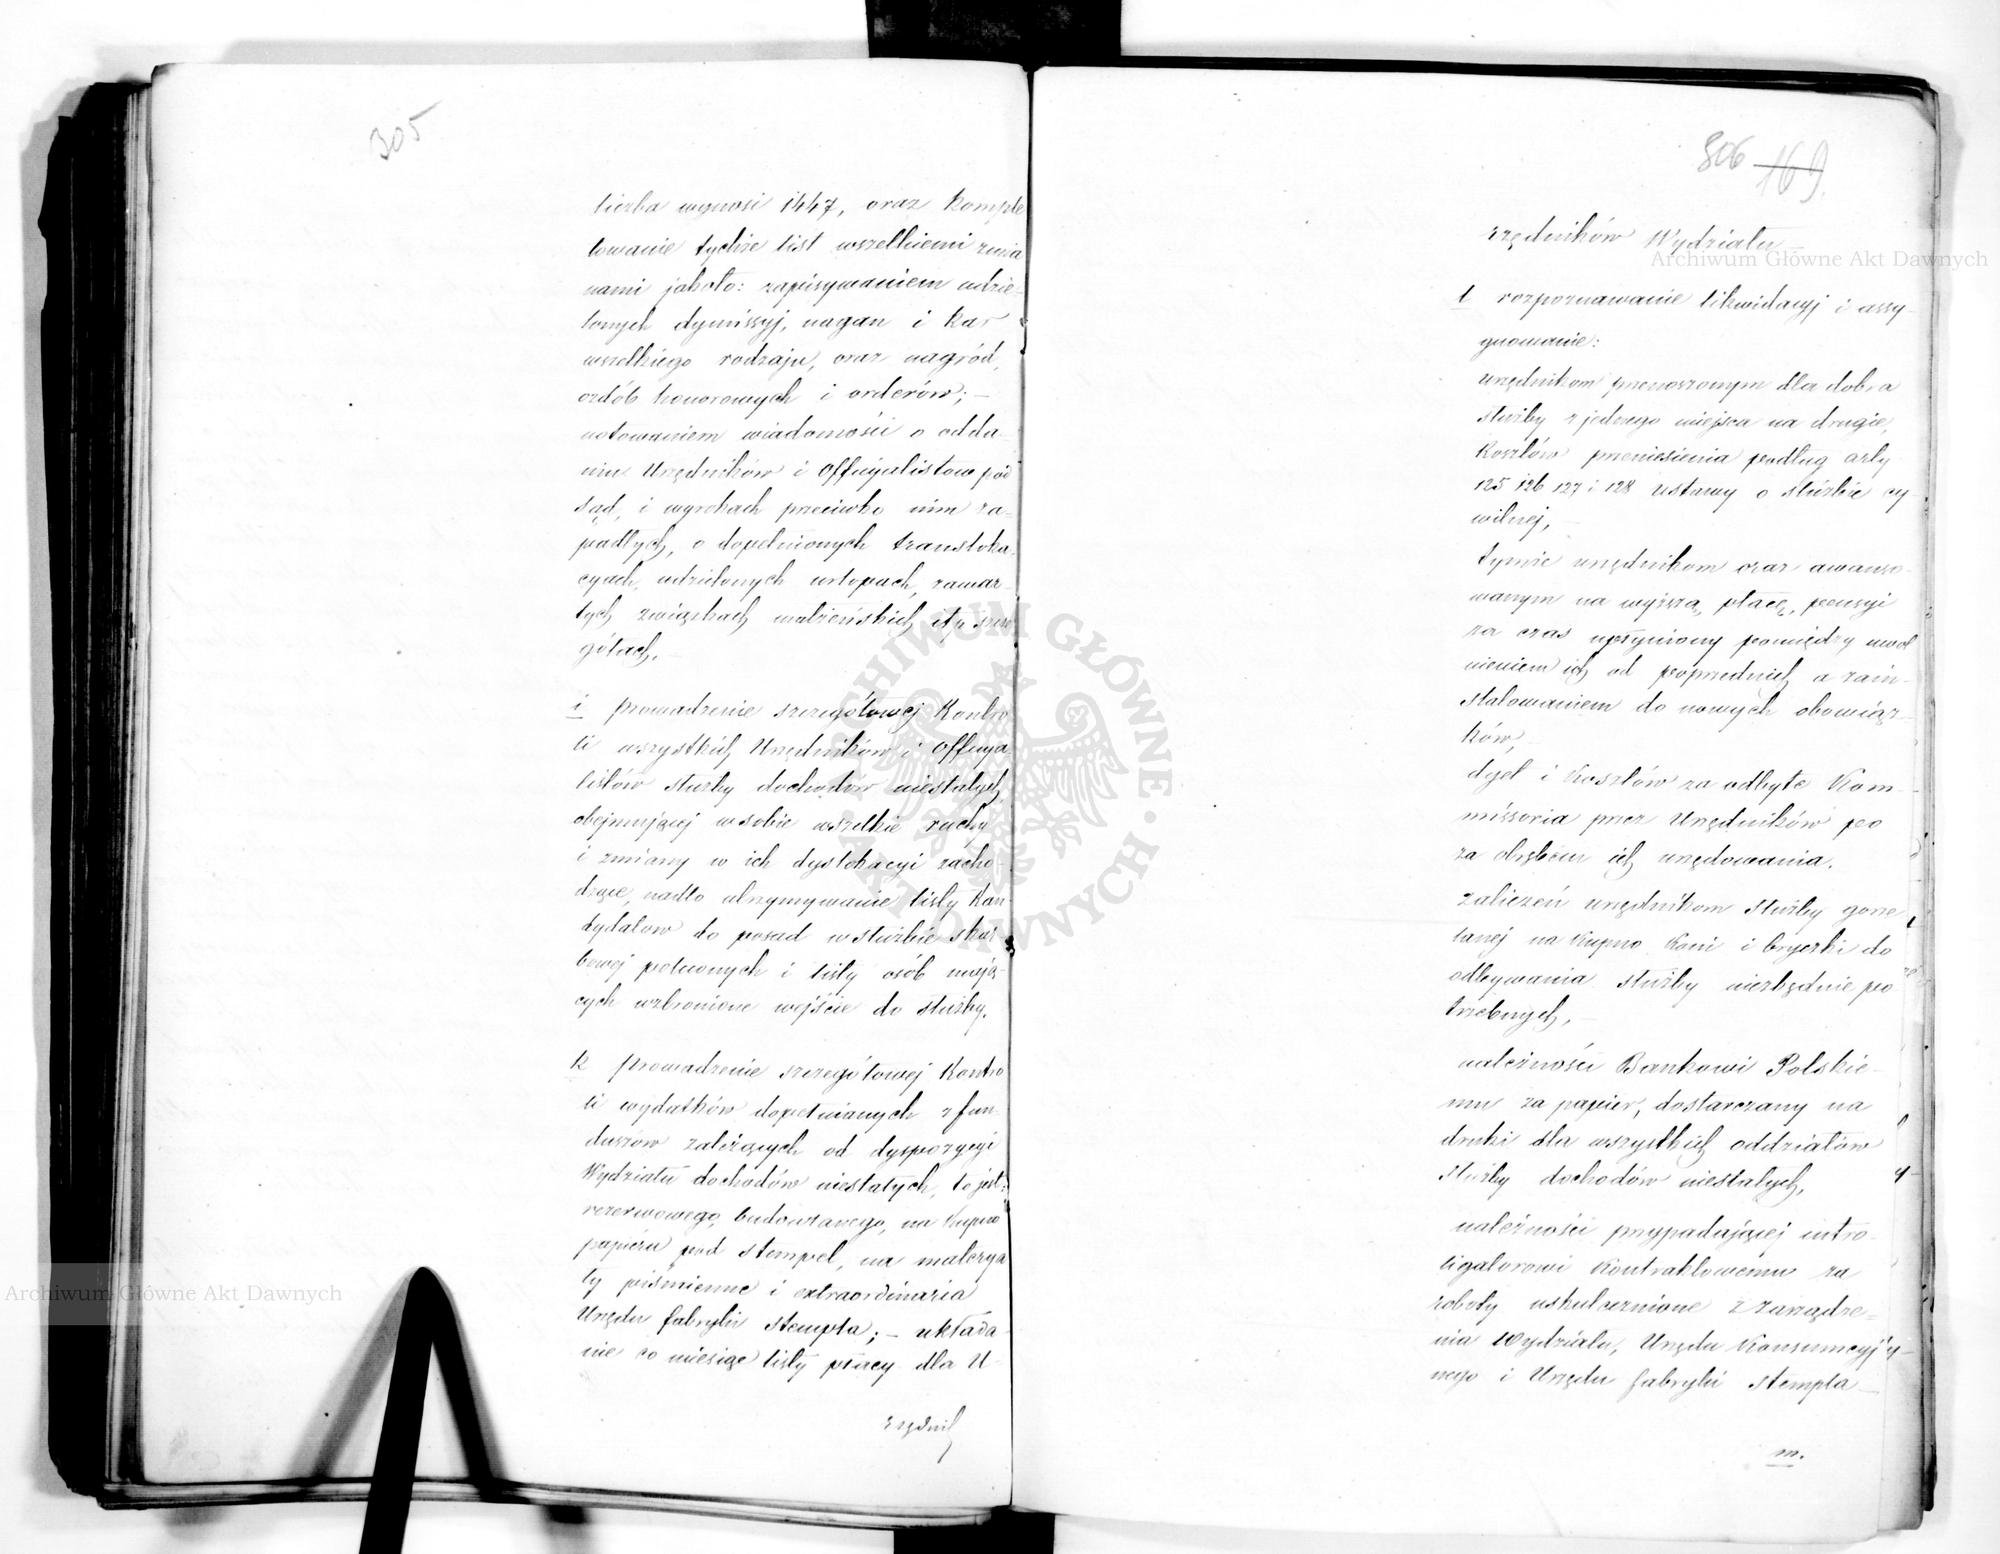 305
liczba wynosi 1447, oraz komple
towanie tychże list wszelkiemi zmia
nami jakoto: zapisywaniem udzie-
lonych dymissyj, nagan i kar
wszelkiego rodzaju, oraz nagród,
ozdób honorowych i orderów; —
notowaniem wiadomości o odda-
niu Urzędników i Officyalistow pod
sąd, i wyrokach przeciwko nim za-
padłych, o dopełnionych transloka-
cyach, udzielonych urlopach, zawar-
tych związkach małżeńskich itp szcze
gółach, —
i prowadzenie szczegółowej Kontro
li wszystkich Urzędników i Officya
listów służby dochodów niestałych
obejmującej w sobie wszelkie ruchy
i zmiany w ich dyslokacyi zacho-
dzące, nadto utrzymywanie listy Kan
dydatow do posad w służbie skar
bowej poleconych i listy osób mają-
cych wzbronione wejście do służby.
k prowadzenie szczegółowej Kontro
li wydatków dopełnianych z fun-
duszów zależących od dyspozycyi
Wydziału dochodów niestałych, to jest:
rezerwowego, budowlanego, na kupno
papieru pod stempel, na materya
ły piśmienne i extraordinaria
Urzędu fabryki stempla; — układa
nie co miesiąc listy płacy dla U-
rzędnik
306 169.
rzędników Wydziału
l rozpoznawanie likwidacyj i assy-
gnowanie:
urzędnikom przenoszonym dla dobra
służby z jednego miejsca na drugie,
Kosztów przeniesienia podług arty
125 126 127 i 128 ustawy o służbie cy-
wilnej, —
tymże urzędnikom oraz awanso-
wanym na wyższą płacę, pensyi
za czas upłyniony pomiędzy uwol
nieniem ich od poprzednich a zain-
stalowaniem do nowych obowiąz-
ków, —
dyet i Kosztów za odbyte Kom-
missoria przez Urzędników po
za obrębem ich urzędowania.
zaliczeń urzędnikom służby gorze
lanej na kupno koni i bryczki do
odbywania służby niezbędnie po
trzebnych, —
należności Bankowi Polskie-
mu za papier, dostarczany na
druki dla wszystkich oddziałów
służby dochodów niestałych,
należności przypadającej intro-
ligatorowi Kontraktowemu za
roboty uskutecznione z zarządze-
nia Wydziału, Urzędu Konsumcyjy-
nego i Urzędu fabryki stempla —
m.
Archiwum Główne Akt Dawnych
Archiwum Główne Akt Dawnych
ARCHIWUM GŁÓWNE AKT DAWNYCH